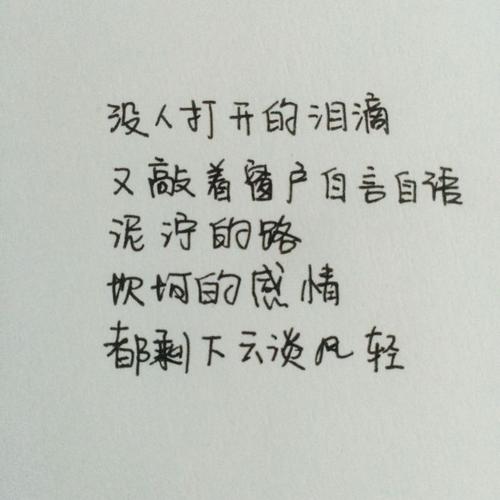 没人打开的泪滴
又敲着窗户自言自语
泥泞的路
坎坷的感情
都剩下云淡风轻